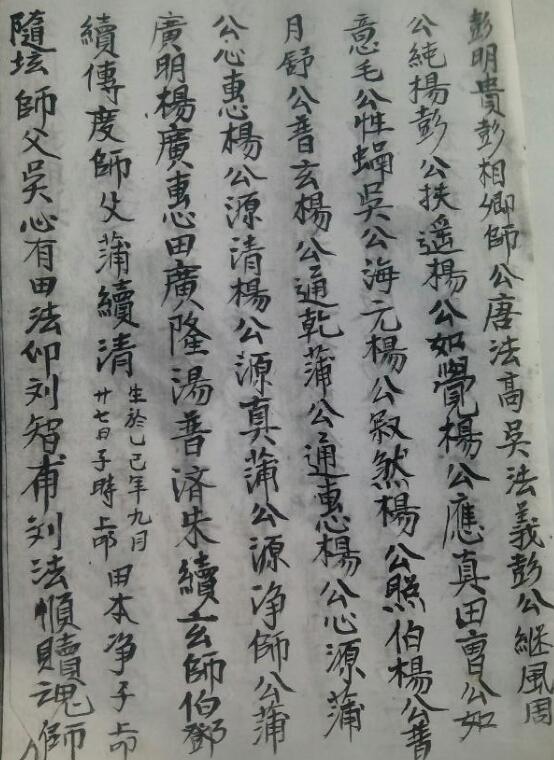 彭明貴彭相卿師公唐法高吳法義彭公継風周
公純楊彭公扶遥楊公如覺楊公應真田曹公如
意毛公性蝸吳公海元楊公寂然楊公照伯楊公普
月舒公普玄楊公通乾蒲公通惠楊公心源蒲
公心惠楊公源清楊公源真蒲公源净師公蒲
廣明楊廣惠田廣隆湯普済朱續玄師伯鄧
續傳度師父蒲續清
生於乙巳年九月
廿七日子時上
田本净子上
隨坛師父吳心有田法仰刘智甫刘法順贖魂師